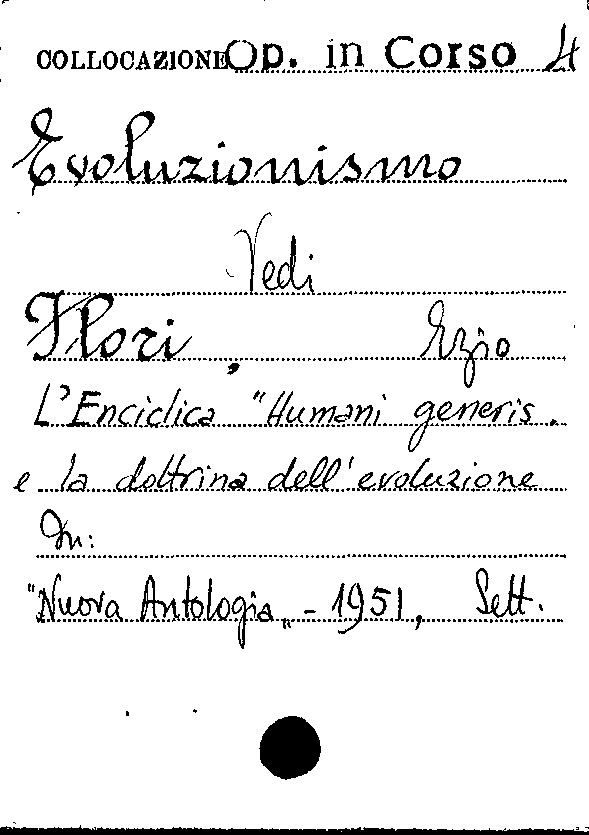 COLLOCAZIONE Op. in Corso 4
Evoluzionismo
Vedi
Flori, Ezio
L'Enciclica "Humani generis.
e la dottrina dell'evoluzione
In:
"Nuova Antologia„ - 1951, Sett.